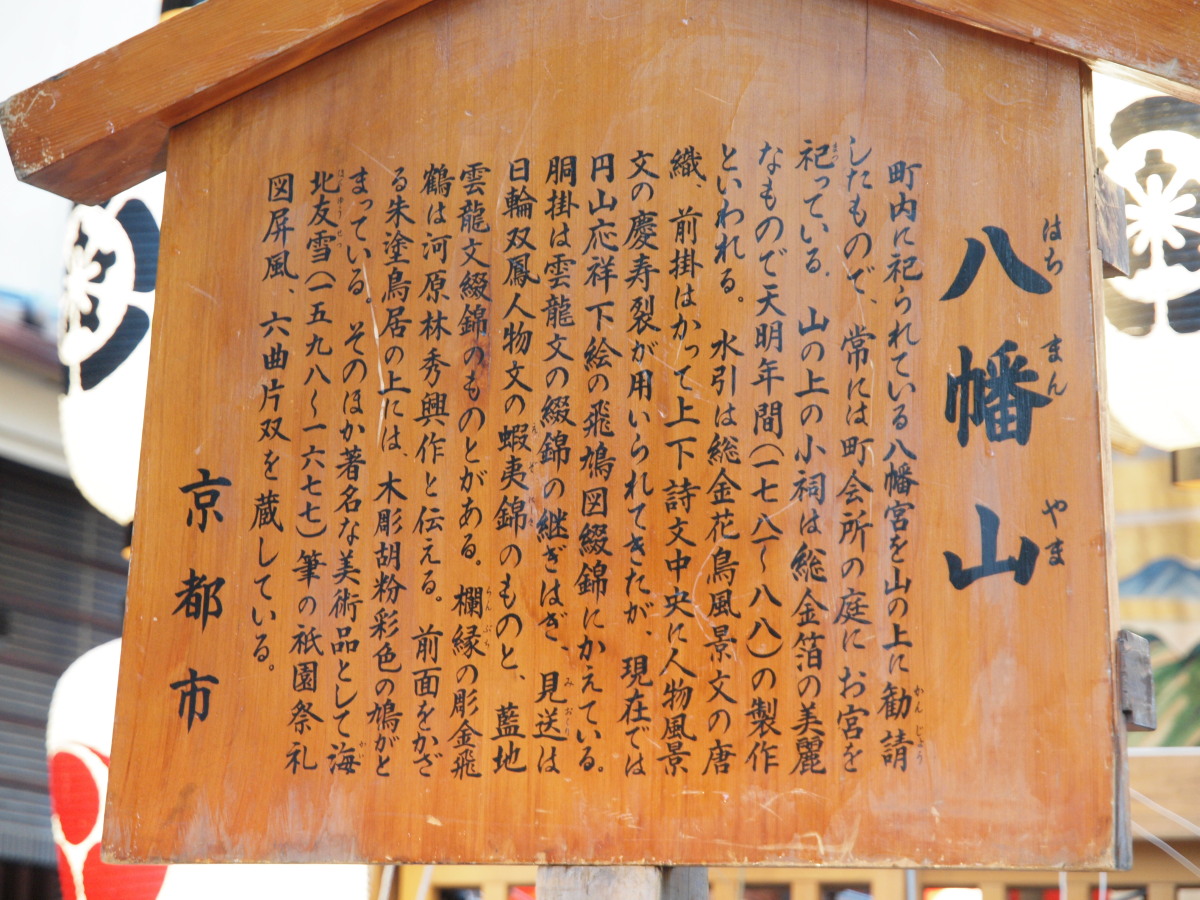 八幡山
はちまんやま
町内に祀られている八幡宮を山の上に勧請
かんじょう
したもので、常には町会所の庭にお宮を
祀っている。山の上の小祠は総金箔の美麗
まつ
なもので天明年間(一七八一〜八八)の製作
といわれる。水引は総金花鳥風景文の唐
織、前掛はかって上下詩文中央に人物風景
文の慶寿裂が用いられてきたが、現在では
円山応祥下絵の飛鳩図綴錦にかえている。
胴掛は雲龍文の綴錦の継ぎはぎ、見送は
みおくり
日輪双鳳人物文の蝦夷錦のものと、藍地
えぞにしき
雲龍文綴錦のものとがある。欄縁の彫金飛
らんぶち
鶴は河原林秀興作と伝える。前面をかざ
る朱塗鳥居の上には、木彫胡粉彩色の鳩がと
まっている。そのほか著名な美術品として海
かい
北友雪(一五九八〜一六七七)筆の祇園祭礼
ほうゆうせつ
図屏風、六曲片双を蔵している。
京都市